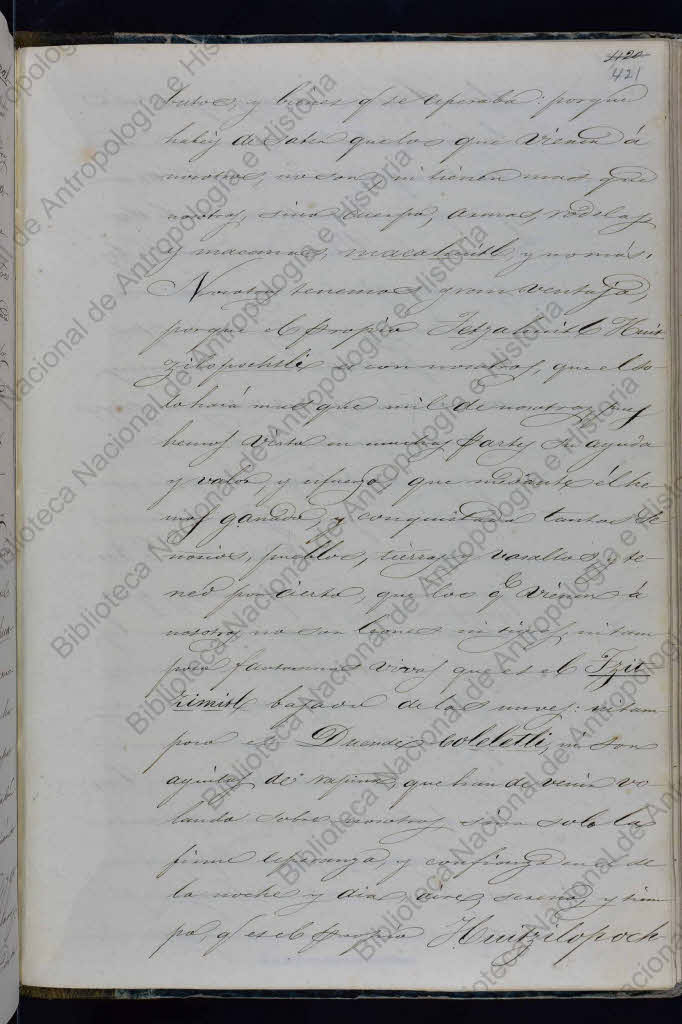 420
421
tutos, y bienes q̃ se esperaba: porque
habeis de saber que los que vienen á
nosotros, no son, ni tienen mas que
nosotros, sino cuerpo, armas, rodelas
y macanas, macahuitl, y no más.
Nosotros tenemos gran ventaja,
porque el propio Tetzahuitl Huit-
zilopochtli es con nosotros, que el so-
lo hará mas que mil de nosotros, pues
hemos visto en muchas partes su ayuda
y valor, y esfuerzo que mediante él he-
mos ganado, y conquistado tantos Se-
ñorios, pueblos, tierras y vasallos, y te-
ned por cierto, que los q̃ vienen á
nosotros no son leones ni tigres, ni tam-
poco fantasmas vivos que es el Tzit-
zimitl, bajado de las nuves: ni tam-
poco el Duende Coleletli, ni son
aguilas de rapiña, que han de venir vo-
lando sobre nosotros, sino solo la
firme esperanza, y confianza en el de
la noche y dia, aire, sereno, y tiem-
po, q̃ es el propio Huitzilopoch-
Biblioteca Nacional de Antropología e Historia